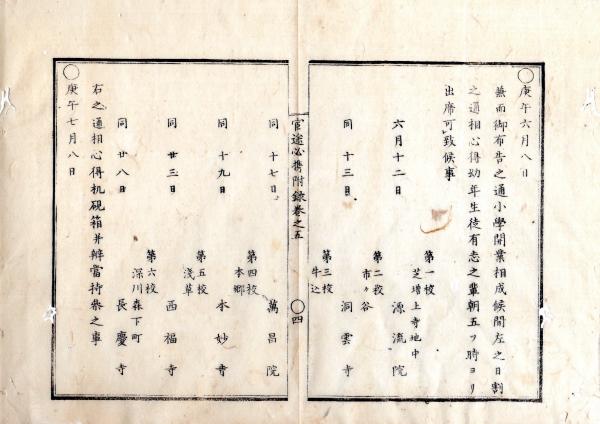 庚午六月八日
兼而御布告之通小學開業相成候間左之日割
之通相心得幼年生徒有志之輩朝五ツ時ヨリ
出席可致候事
六月十二日
第一校
芝増上寺地中
源流院
同十三日
第二校
市ヶ谷
洞雲寺
第三校
牛込
官途必携附録巻之五
四
同十七日
萬昌院
第四校
本郷
同十九日
本妙寺
第五校
淺草
同廿三日
西福寺
第六校
深川森下町
同廿八日
長慶寺
右之通相心得机硯箱并辨當持参之事
庚午七月八日